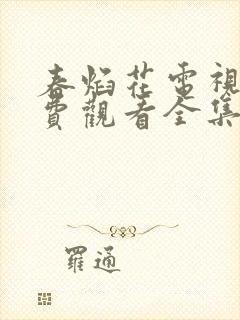 春焰花電視
費觀看全集
羅通